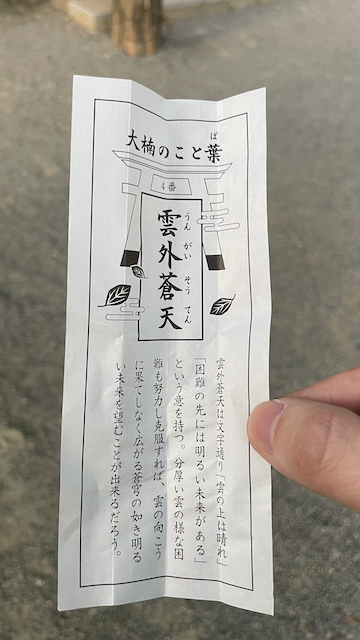 大楠のこと葉
ば
4番
雲外蒼天
うん がい そう てん
雲外蒼天は文字通り「雲の上は晴れ」
「困難の先には明るい未来がある」
という意を持つ。分厚い雲の様な困
難も努力し克服すれば、雲の向こう
に果てしなく広がる蒼穹の如き明る
い未来を望むことが出来るだろう。